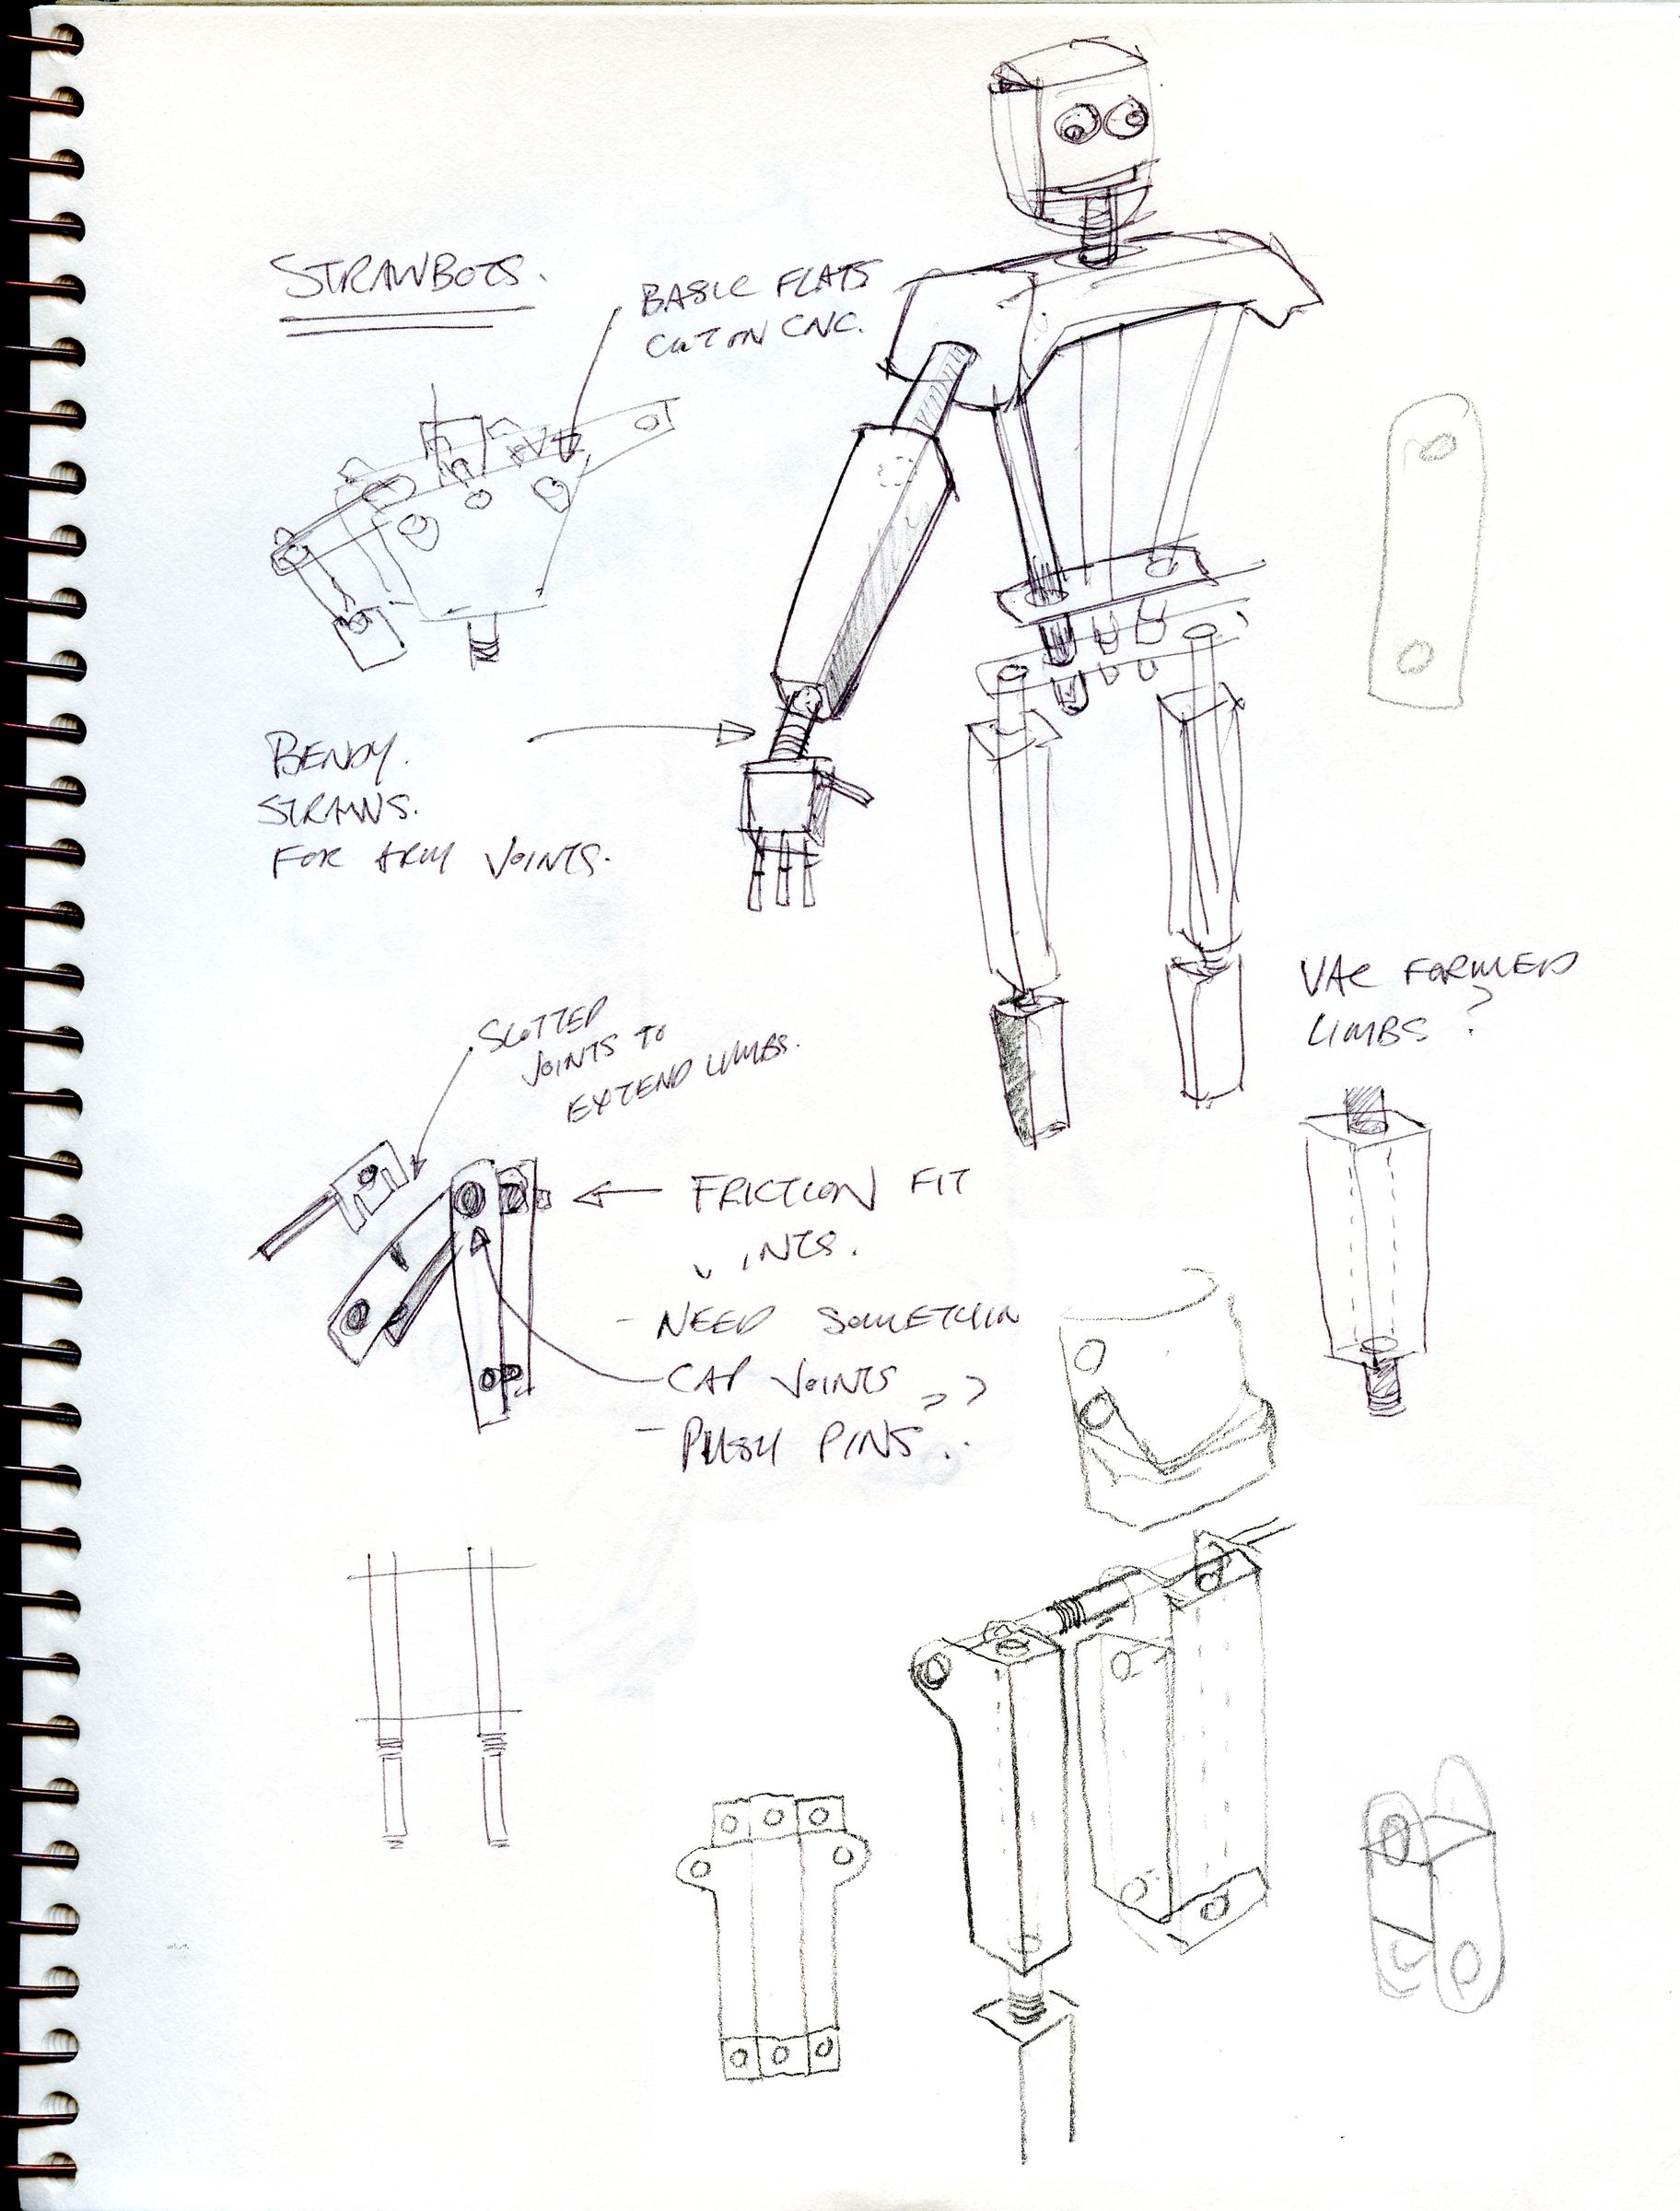 STRAWBOTS.
BASIC FLATS
CUT ON CNC.
BENDY.
STRAWS.
FOR ARM JOINTS.
VAC FORMED
LIMBS ?
SLOTTED
JOINTS TO
EXTEND LIMBS.
FRICTION FIT
INTS.
- NEED SOMETHIN
CAP JOINTS ??
- PUSH PINS..